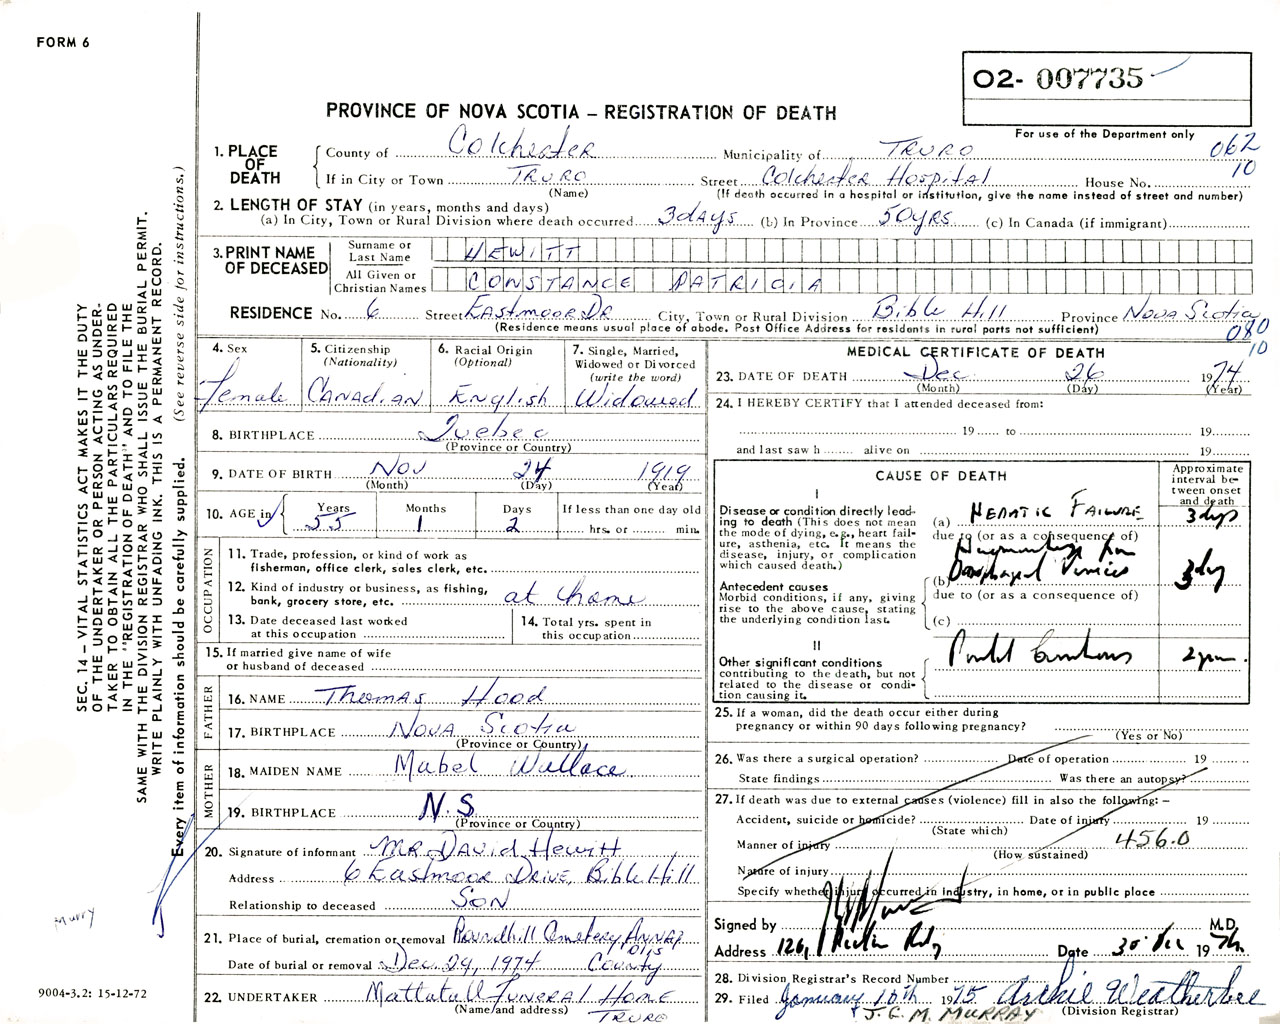 FORM 6
O2- 007735
For use of the Department only
PROVINCE OF NOVA SCOTIA – REGISTRATION OF DEATH
062
10
1. PLACE OF DEATH
County of Colchester Municipality of TRURO
If in City or Town TRURO Street Colchester Hospital House No.
(Name) (If death occurred in a hospital or institution, give the name instead of street and number)
2. LENGTH OF STAY (in years, months and days)
(a) In City, Town or Rural Division where death occurred 3 days (b) In Province 50 yrs (c) In Canada (if immigrant)
3. PRINT NAME OF DECEASED
Surname or Last Name HEWITT
All Given or Christian Names CONSTANCE PATRICIA
RESIDENCE No. 6 Street Eastmoor Dr City, Town or Rural Division Bible Hill Province Nova Scotia
(Residence means usual place of abode. Post Office Address for residents in rural parts not sufficient)
080
10
4. Sex
Female
5. Citizenship
(Nationality)
Canadian
6. Racial Origin
(Optional)
English
7. Single, Married,
Widowed or Divorced
(write the word)
Widowed
8. BIRTHPLACE Quebec
(Province or Country)
9. DATE OF BIRTH Nov 24 1919
(Month) (Day) (Year)
10. AGE in Years Months Days If less than one day old
55 1 2 hrs. or min.
OCCUPATION
11. Trade, profession, or kind of work as
fisherman, office clerk, sales clerk, etc.
12. Kind of industry or business, as fishing,
bank, grocery store, etc. at home
13. Date deceased last worked
at this occupation
14. Total yrs. spent in
this occupation
15. If married give name of wife
or husband of deceased
FATHER
16. NAME Thomas Hood
17. BIRTHPLACE Nova Scotia
(Province or Country)
MOTHER
18. MAIDEN NAME Mabel Wallace
19. BIRTHPLACE N.S
(Province or Country)
20. Signature of informant Mr. David Hewitt
Address 6 Eastmoor Drive, Bible Hill
Relationship to deceased Son
21. Place of burial, cremation or removal Roundhill Cemetery, Annapolis
Date of burial or removal Dec. 29, 1974 County
22. UNDERTAKER Mattatall Funeral Home
(Name and address) TRURO
MEDICAL CERTIFICATE OF DEATH
23. DATE OF DEATH Dec. 26 1974
(Month) (Day) (Year)
24. I HEREBY CERTIFY that I attended deceased from:
19 to 19
and last saw h alive on 19
CAUSE OF DEATH
Approximate interval between onset and death
I
Disease or condition directly leading to death (This does not mean the mode of dying, e.g., heart failure, asthenia, etc. It means the disease, injury, or complication which caused death.)
(a) HEPATIC FAILURE 3 days
due to (or as a consequence of)
Haemorrhage from
(b) Oesophageal Varices 3 day
Antecedent causes
Morbid conditions, if any, giving rise to the above cause, stating the underlying condition last.
due to (or as a consequence of)
(c)
II
Other significant conditions contributing to the death, but not related to the disease or condition causing it.
Portal Cirrhosis
25. If a woman, did the death occur either during
pregnancy or within 90 days following pregnancy?
(Yes or No)
26. Was there a surgical operation? Date of operation 19
State findings Was there an autopsy?
27. If death was due to external causes (violence) fill in also the following: –
Accident, suicide or homicide? Date of injury 19
(State which)
Manner of injury 456.0
(How sustained)
Nature of injury
Specify whether injury occurred in industry, in home, or in public place
Signed by M.D.
Address 126, Date 30 Dec 1974
28. Division Registrar's Record Number
29. Filed January 10th 1975 Archie Weatherbee
(Division Registrar)
J. C. M. MURRAY
SEC. 14 – VITAL STATISTICS ACT MAKES IT THE DUTY
OF THE UNDERTAKER OR PERSON ACTING AS UNDER-
TAKER TO OBTAIN ALL THE PARTICULARS REQUIRED
IN THE "REGISTRATION OF DEATH" AND TO FILE THE
SAME WITH THE DIVISION REGISTRAR WHO SHALL ISSUE THE BURIAL PERMIT.
WRITE PLAINLY WITH UNFADING INK. THIS IS A PERMANENT RECORD.
Every item of information should be carefully supplied. (See reverse side for instructions.)
Murry
9004-3.2: 15-12-72